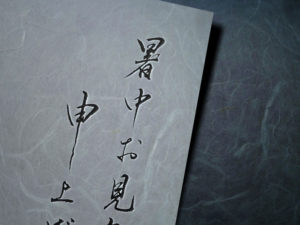 暑中お見
申上